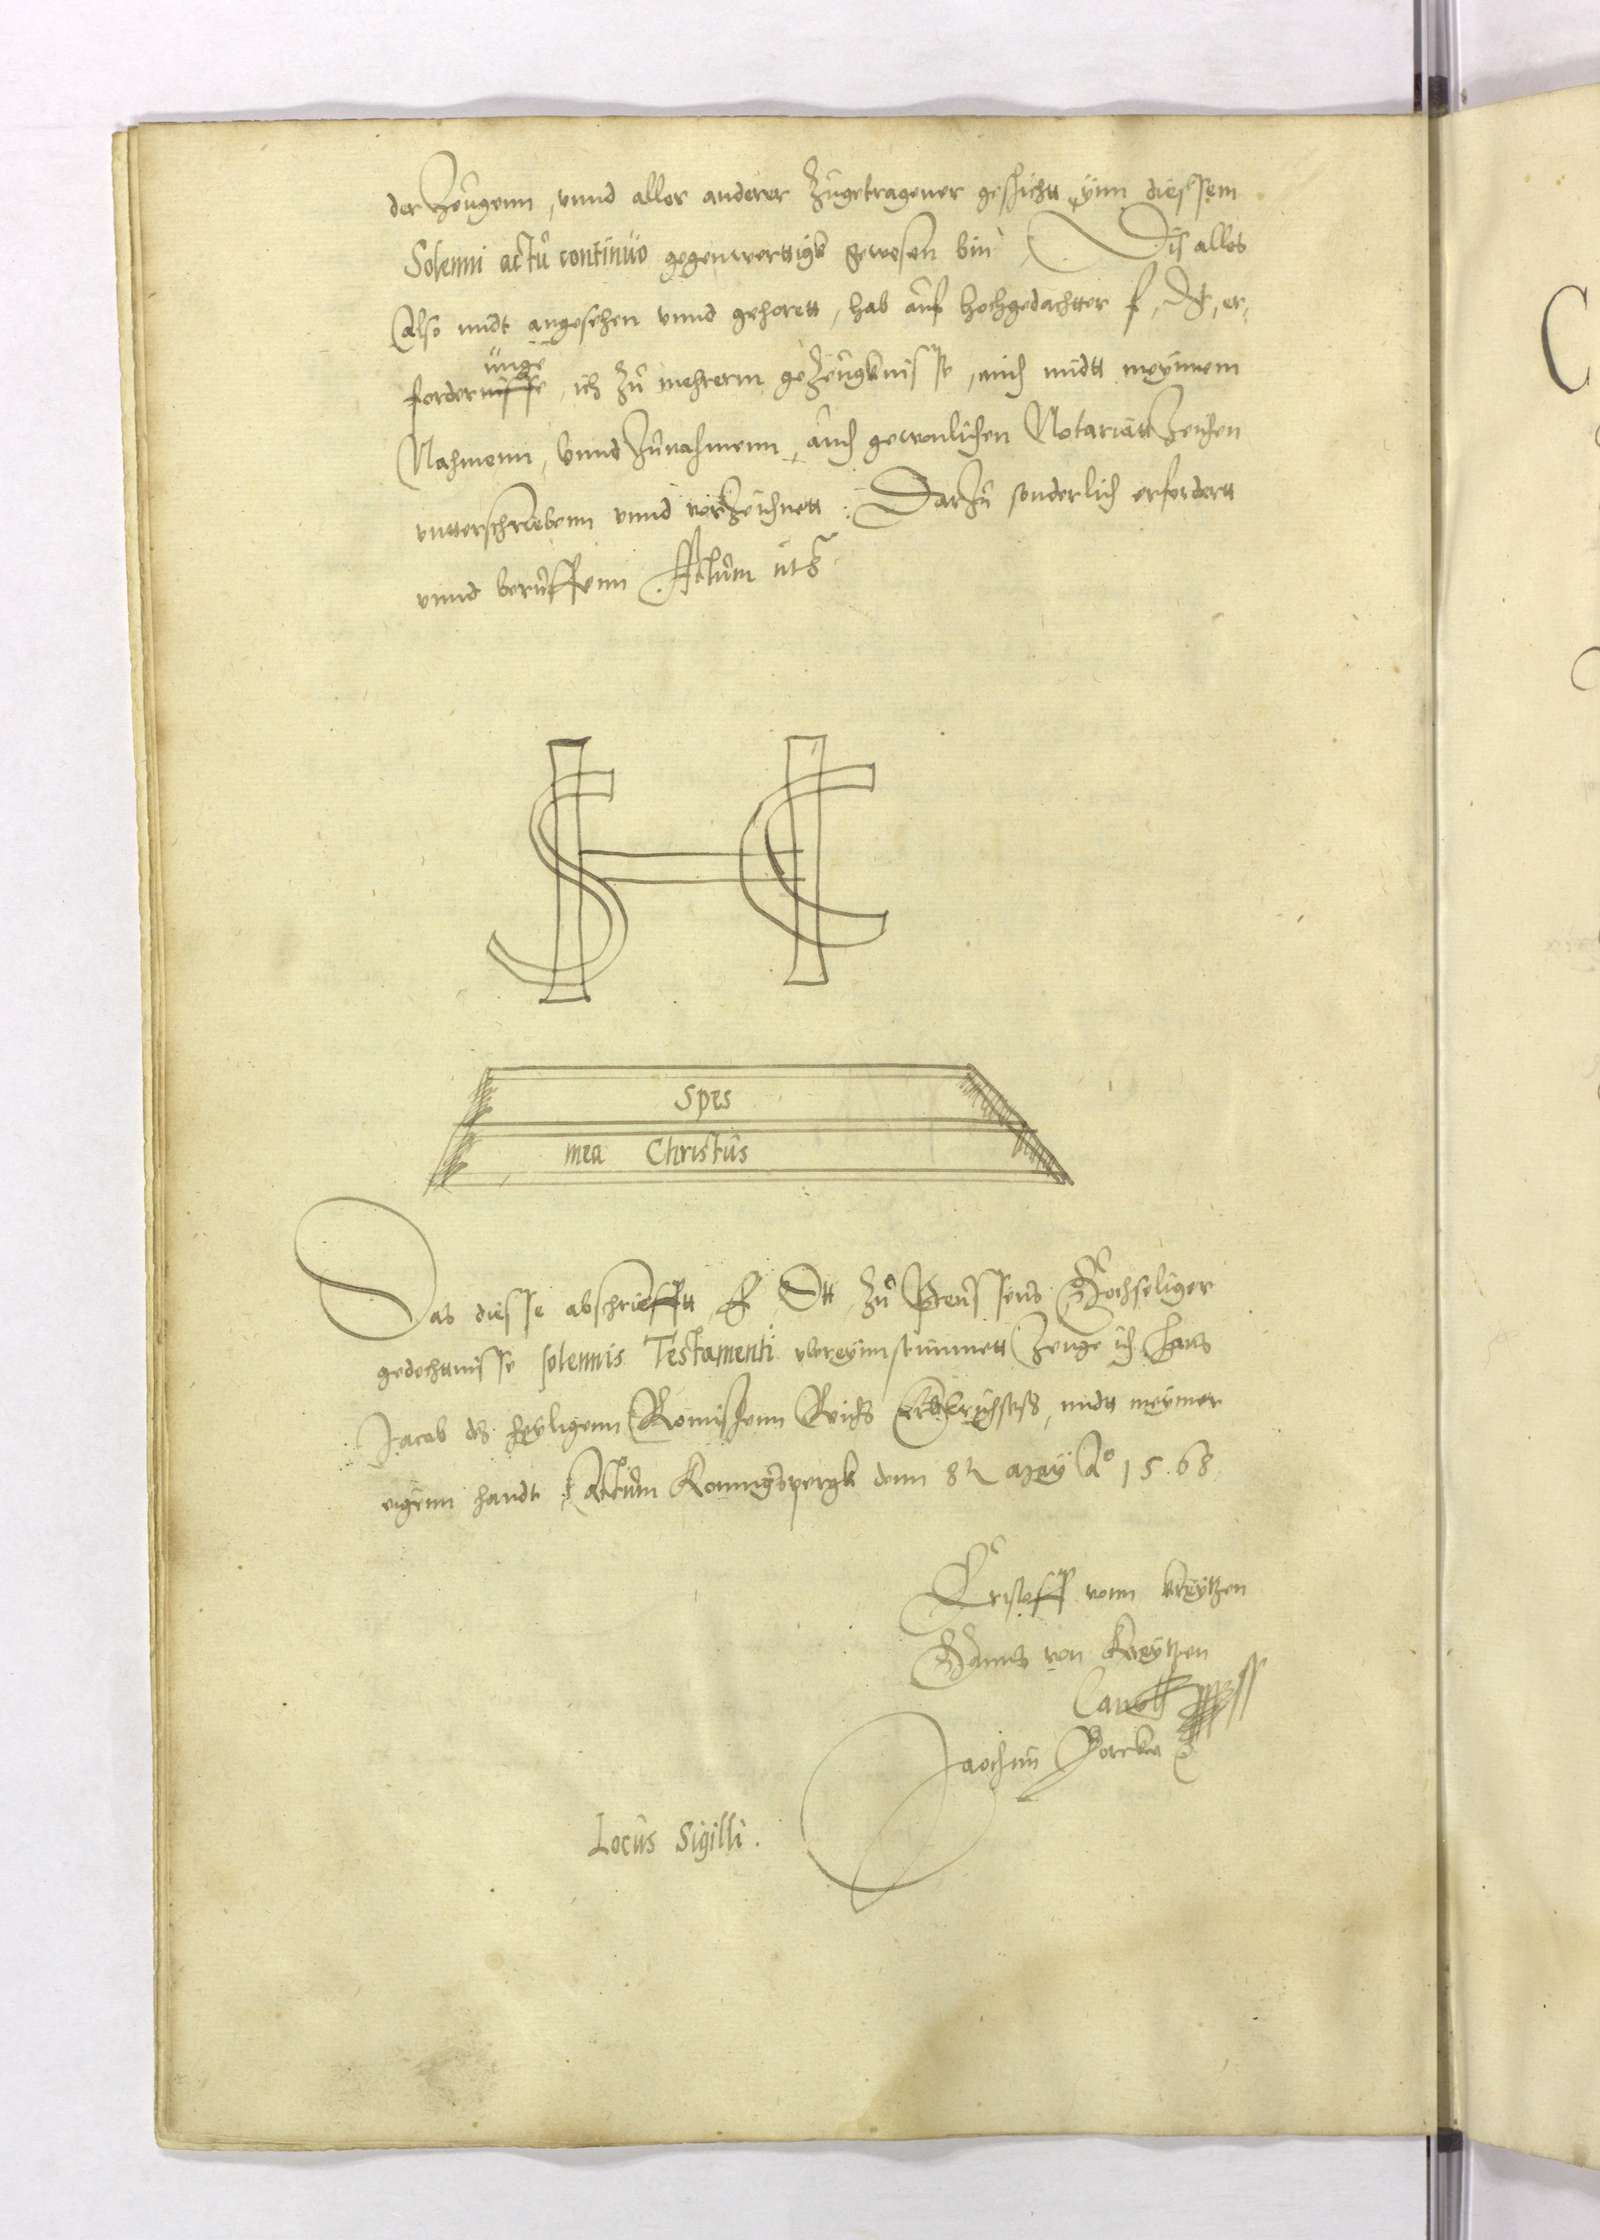 der Zeugenn, vnnd aller anderer Zugetragener geschicht ynn diessem
Solenni actu continuo gegenwertigk gewesen bin Dis alles
Also midt angesehen vnnd gehorett, hab auf hochgedachtter f. Dt, er,
unge
fordernisse, ich zu mehrerm gezeugknisse, mich midtt meynnem
Nahmenn, vnnd Zunahmenn, auch gewonlichen Notariatt Zeichen
vntterschriebenn vnnd vorzeichnett: Darzu sonderlich erfordertt
vnnd beruffenn Actum uts
SHC
Spes
mea Christus
Das diesse abschriefftt F Dtt zu Preussens Hochseliger
gedechttnisse solennis Testamenti vbereynstimmett Zeuge ich Hans
Jacob des heyligenn Romischenn Reichs midtt meyner
eigenn handt Actum Konnigspergk denn 8 May Ao 1568
Cristoff vonn kreytzen
Hanns von Kreytzen
Jaochim Borcke
Locus Sigilli.